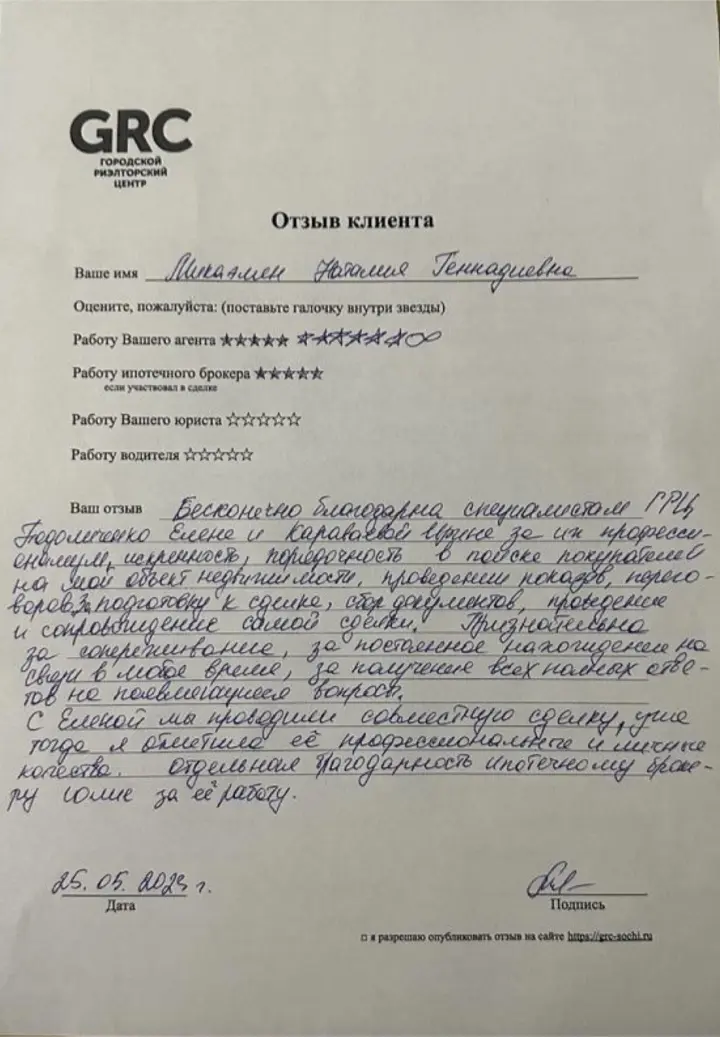 GRC
ГОРОДСКОЙ
РИЭЛТОРСКИЙ
ЦЕНТР
Отзыв клиента
Ваше имя Микаэлян Наталия Геннадиевна
Оцените, пожалуйста: (поставьте галочку внутри звезды)
Работу Вашего агента ★★★★★ ★★★★★★∞
Работу ипотечного брокера ★★★★★
если участвовал в сделке
Работу Вашего юриста ☆☆☆☆☆
Работу водителя ☆☆☆☆☆
Ваш отзыв Бесконечно благодарна специалистам ГРЦ
Елене и Караваевой Ирине за их професси-
онализм, искренность, порядочность в поиске покупателей
на мой объект недвижимости, проведении показов, перего-
воров. За подготовку к сделке, сбор документов, проведение
и сопровождение самой сделки. Признательна
за сопереживание, за постоянное нахождение на
связи в любое время, за получение всех полных отве-
тов на появляющиеся вопросы.
С Еленой мы проводили совместную сделку, уже
тогда я отметила её профессиональные и личные
качества. Отдельная благодарность ипотечному броке-
ру Юлие за её работу.
25.05.2023 г.
Дата
Подпись
□ я разрешаю опубликовать отзыв на сайте https://grc-sochi.ru